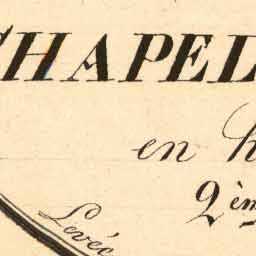 CHAPEL
en h
2èm
Levée